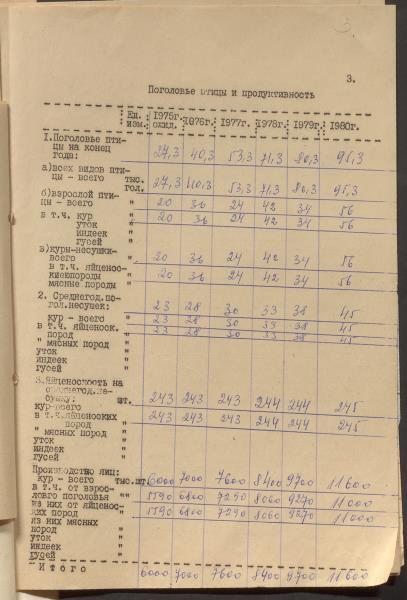 3.
3.
Поголовье птицы и продуктивность
Ед. изм. 1975г. ожид. 1976г. 1977г. 1978г. 1979г. 1980г.
1.Поголовье пти-
цы на конец
года: 27,3 40,3 53,3 71,3 80,3 95,3
а)всех видов пти-
цы - всего тыс. гол. 27,3 40,3 53,3 71,3 80,3 95,3
б)взрослой пти-
цы - всего " 20 36 24 42 34 56
в т.ч. кур " 20 36 24 42 34 56
уток "
индеек "
гусей "
в)куры-несушки-
всего " 20 36 24 42 34 56
в т.ч. яйценос-
кие породы " 20 36 24 42 34 56
мясные породы "
2. Среднегод.по-
гол.несушек: 23 28 30 33 38 45
кур - всего " 23 28 30 33 38 45
в т.ч. яйценоск.
пород " 23 28 30 33 38 45
" мясных пород "
уток "
индеек "
гусей "
3.Яйценоскость на
среднегод.не-
сушку: шт. 243 243 243 244 244 245
кур-всего
в т.ч.яйценоских
пород " 243 243 243 244 244 245
" мясных пород "
уток "
индеек "
гусей "
Производство яиц:
кур - всего тыс.шт. 6000 7000 7600 8400 9700 11600
в т.ч. от взрос-
лого поголовья " 5590 6800 7290 8060 9270 11000
из них от яйценос-
ких пород " 5590 6800 7290 8060 9270 11000
из них мясных
пород "
уток "
индеек "
гусей "
Итого 6000 7000 7600 8400 9700 11600